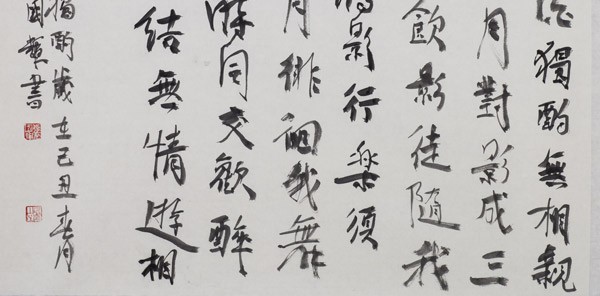 獨酌無相親
月對影成三
飲影徒隨我
影行樂須
月徘徊我舞
時同交歡醉
結無情遊相
獨酌歲在己丑春月
國書